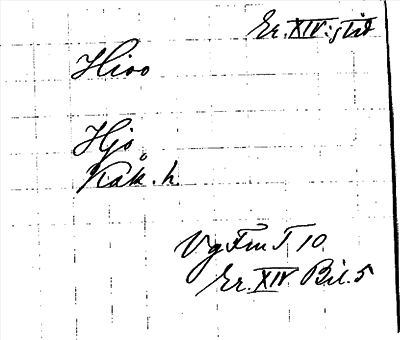 Er. XIV:s tid
Hioo
Hjo
Kåk. h.
Vg Fm T 10
Er. XIV Bil. 5